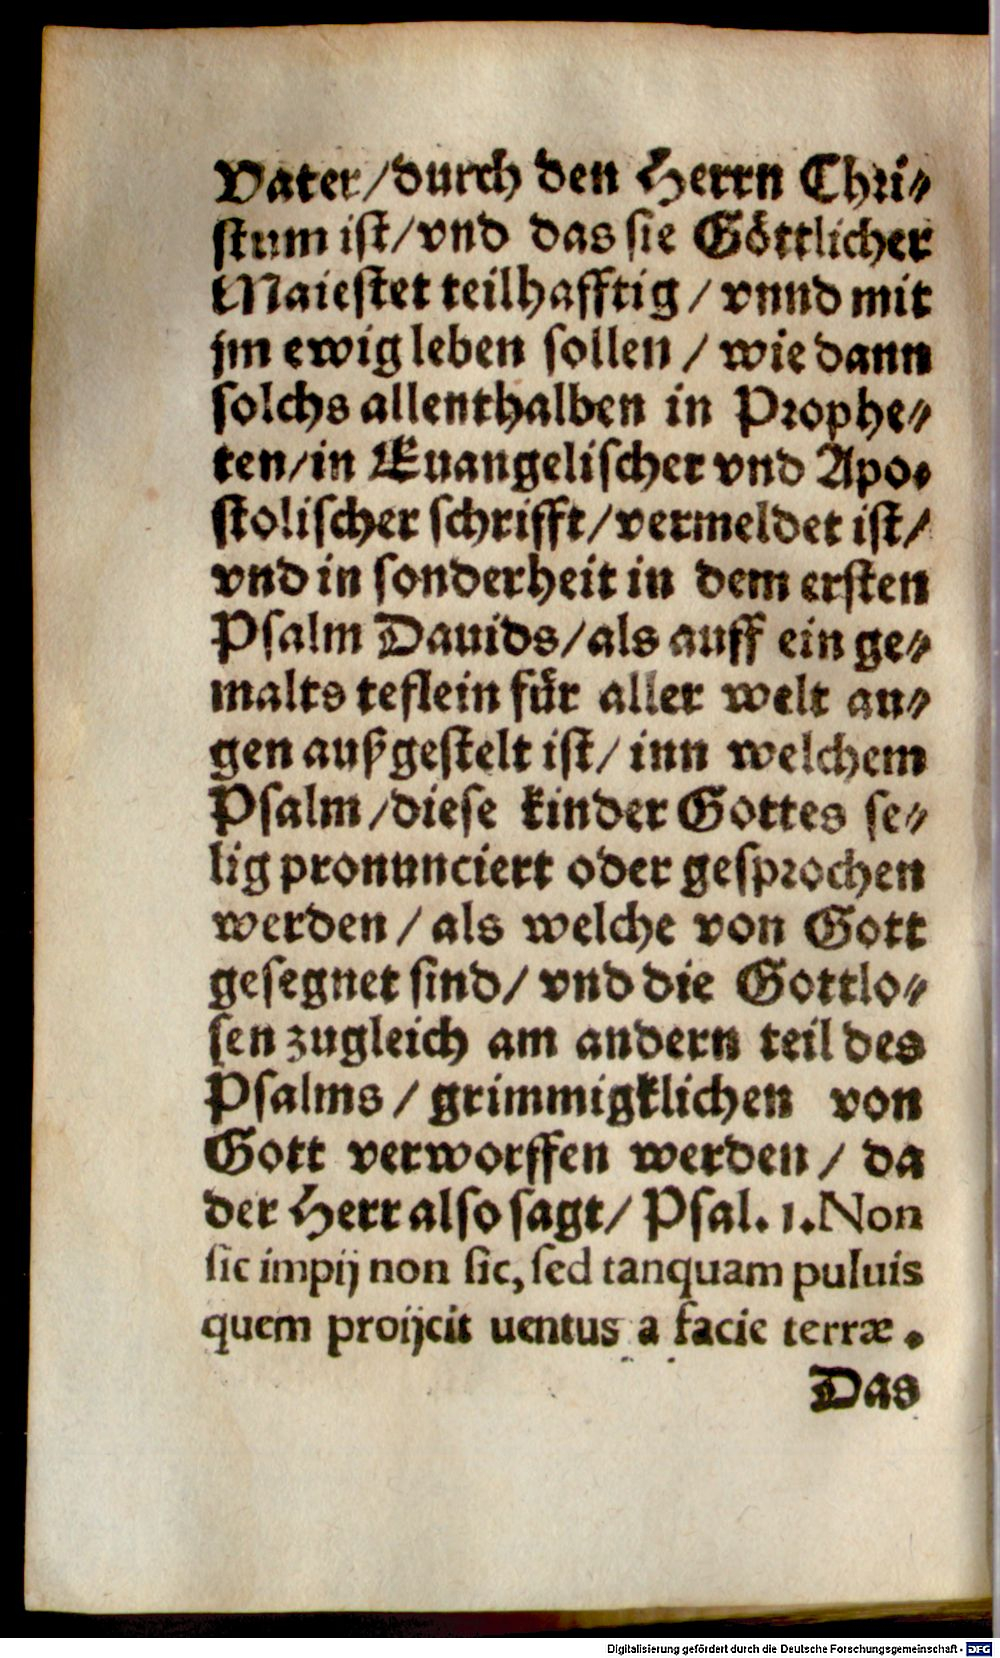 Vater/durch den Herrn Chri-
stum ist/vnd das sie Göttlicher
Maiestet teilhafftig/ vnnd mit
jm ewig leben sollen / wie dann
solchs allenthalben in Prophe-
ten/in Euangelischer vnd Apo-
stolischer schrifft/vermeldet ist/
vnd in sonderheit in dem ersten
Psalm Dauids/als auff ein ge-
malts teflein für aller welt au-
gen außgestelt ist/ inn welchem
Psalm /diese kinder Gottes se-
lig pronunciert oder gesprochen
werden / als welche von Gott
gesegnet sind/ vnd die Gottlo-
sen zugleich am andern teil des
Psalms / grimmigklichen von
Gott verworffen werden / da
der Herr also sagt/ Psal. 1. Non
sic impij non sic, sed tanquam puluis
quem proijcit uentus a facie terræ.
Das
Digitalisierung gefördert durch die Deutsche Forschungsgemeinschaft - DFG